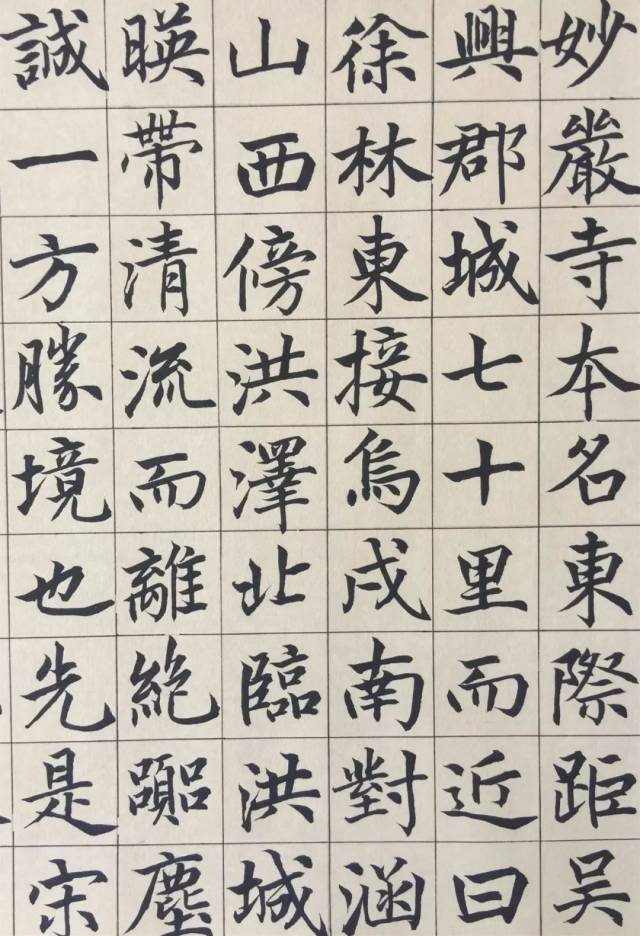 妙嚴寺本名東際距吴
興郡城七十里而近曰
徐林東接烏戍南對涵
山西傍洪澤北臨洪城
暎帶清流而離絶嚻塵
誠一方勝境也先是宋